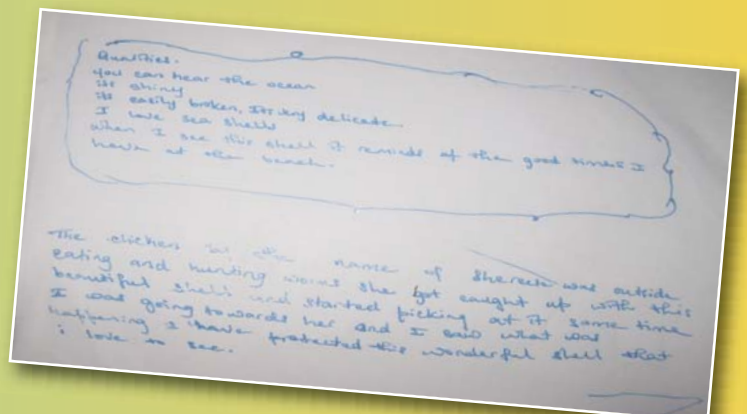 Qualities.
you can hear the ocean
its shiny
its easily broken, its very delicate
I love sea shells
when I see this shell it reminds of the good times I
have at the beach.
The chicken by the name of Shereen was outside
eating and hunting worms she got caught up with this
beautiful shell and started picking at it same time
I was going towards her and I saw what was
happening I have protected this wonderful shell that
i love to see.